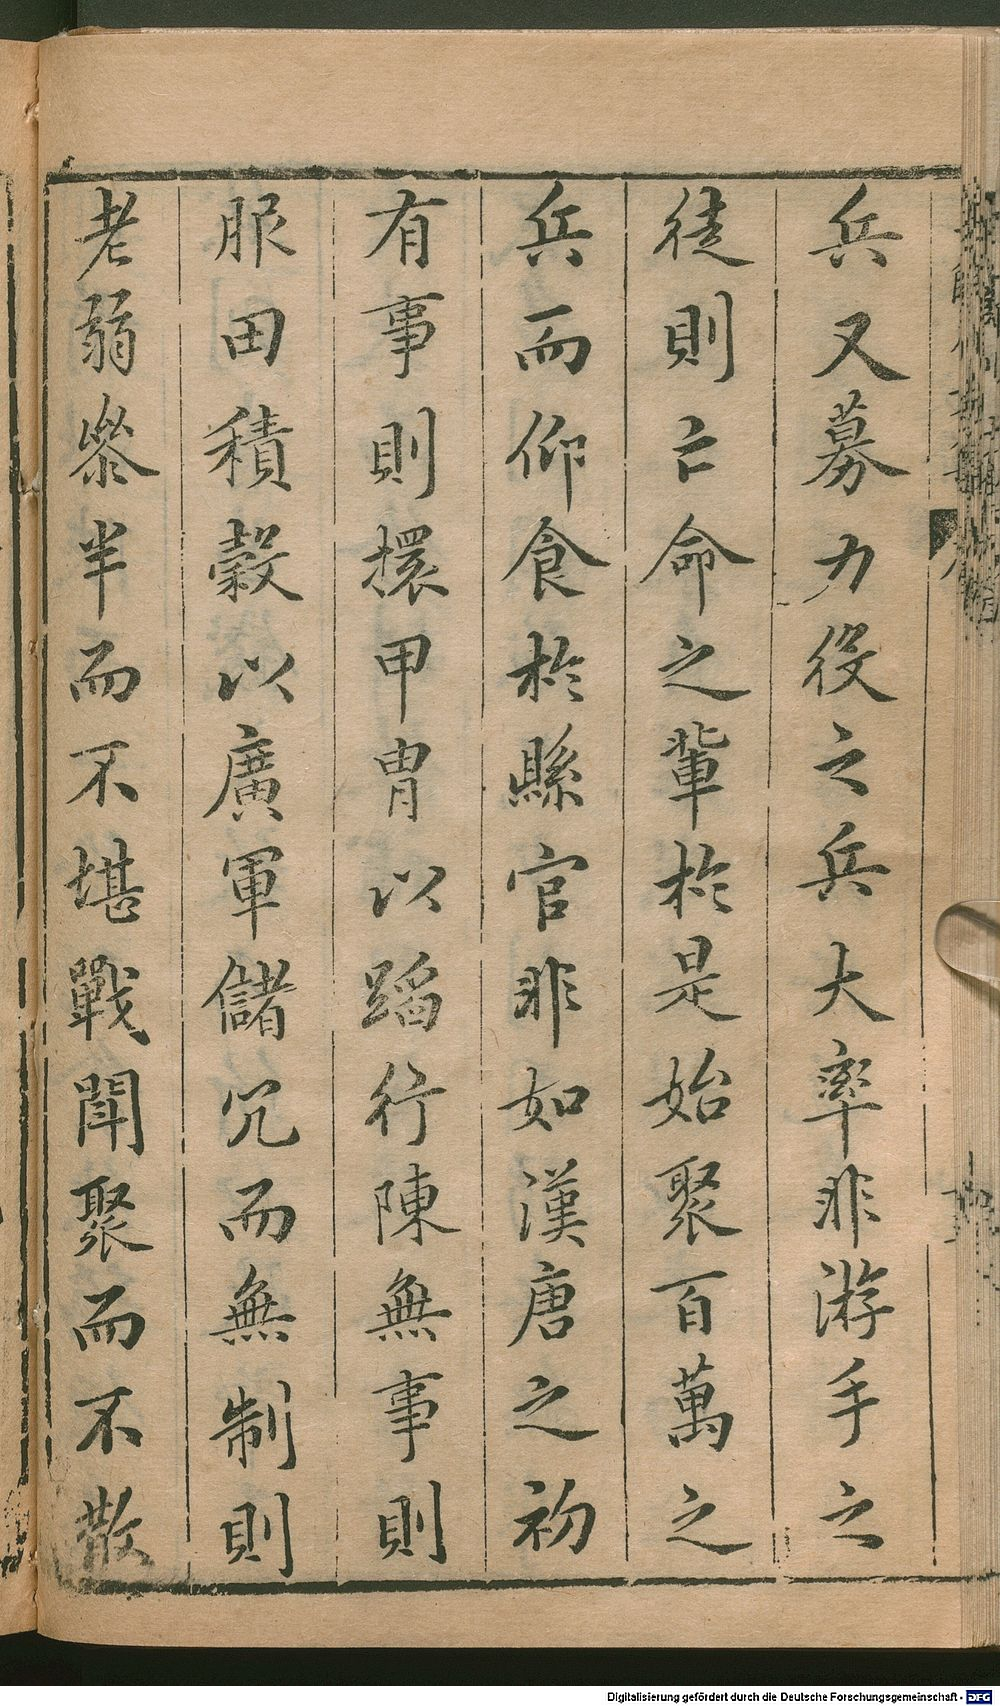 兵又募力役之兵大率非游手之
徒則亡命之輩於是始聚百萬之
兵而仰食於縣官非如漢唐之初
有事則擐甲冑以蹈行陳無事則
服田積穀以廣軍儲冗而無制則
老弱叅半而不堪戰鬪聚而不散
Digitalisierung gefördert durch die Deutsche Forschungsgemeinschaft - DFG